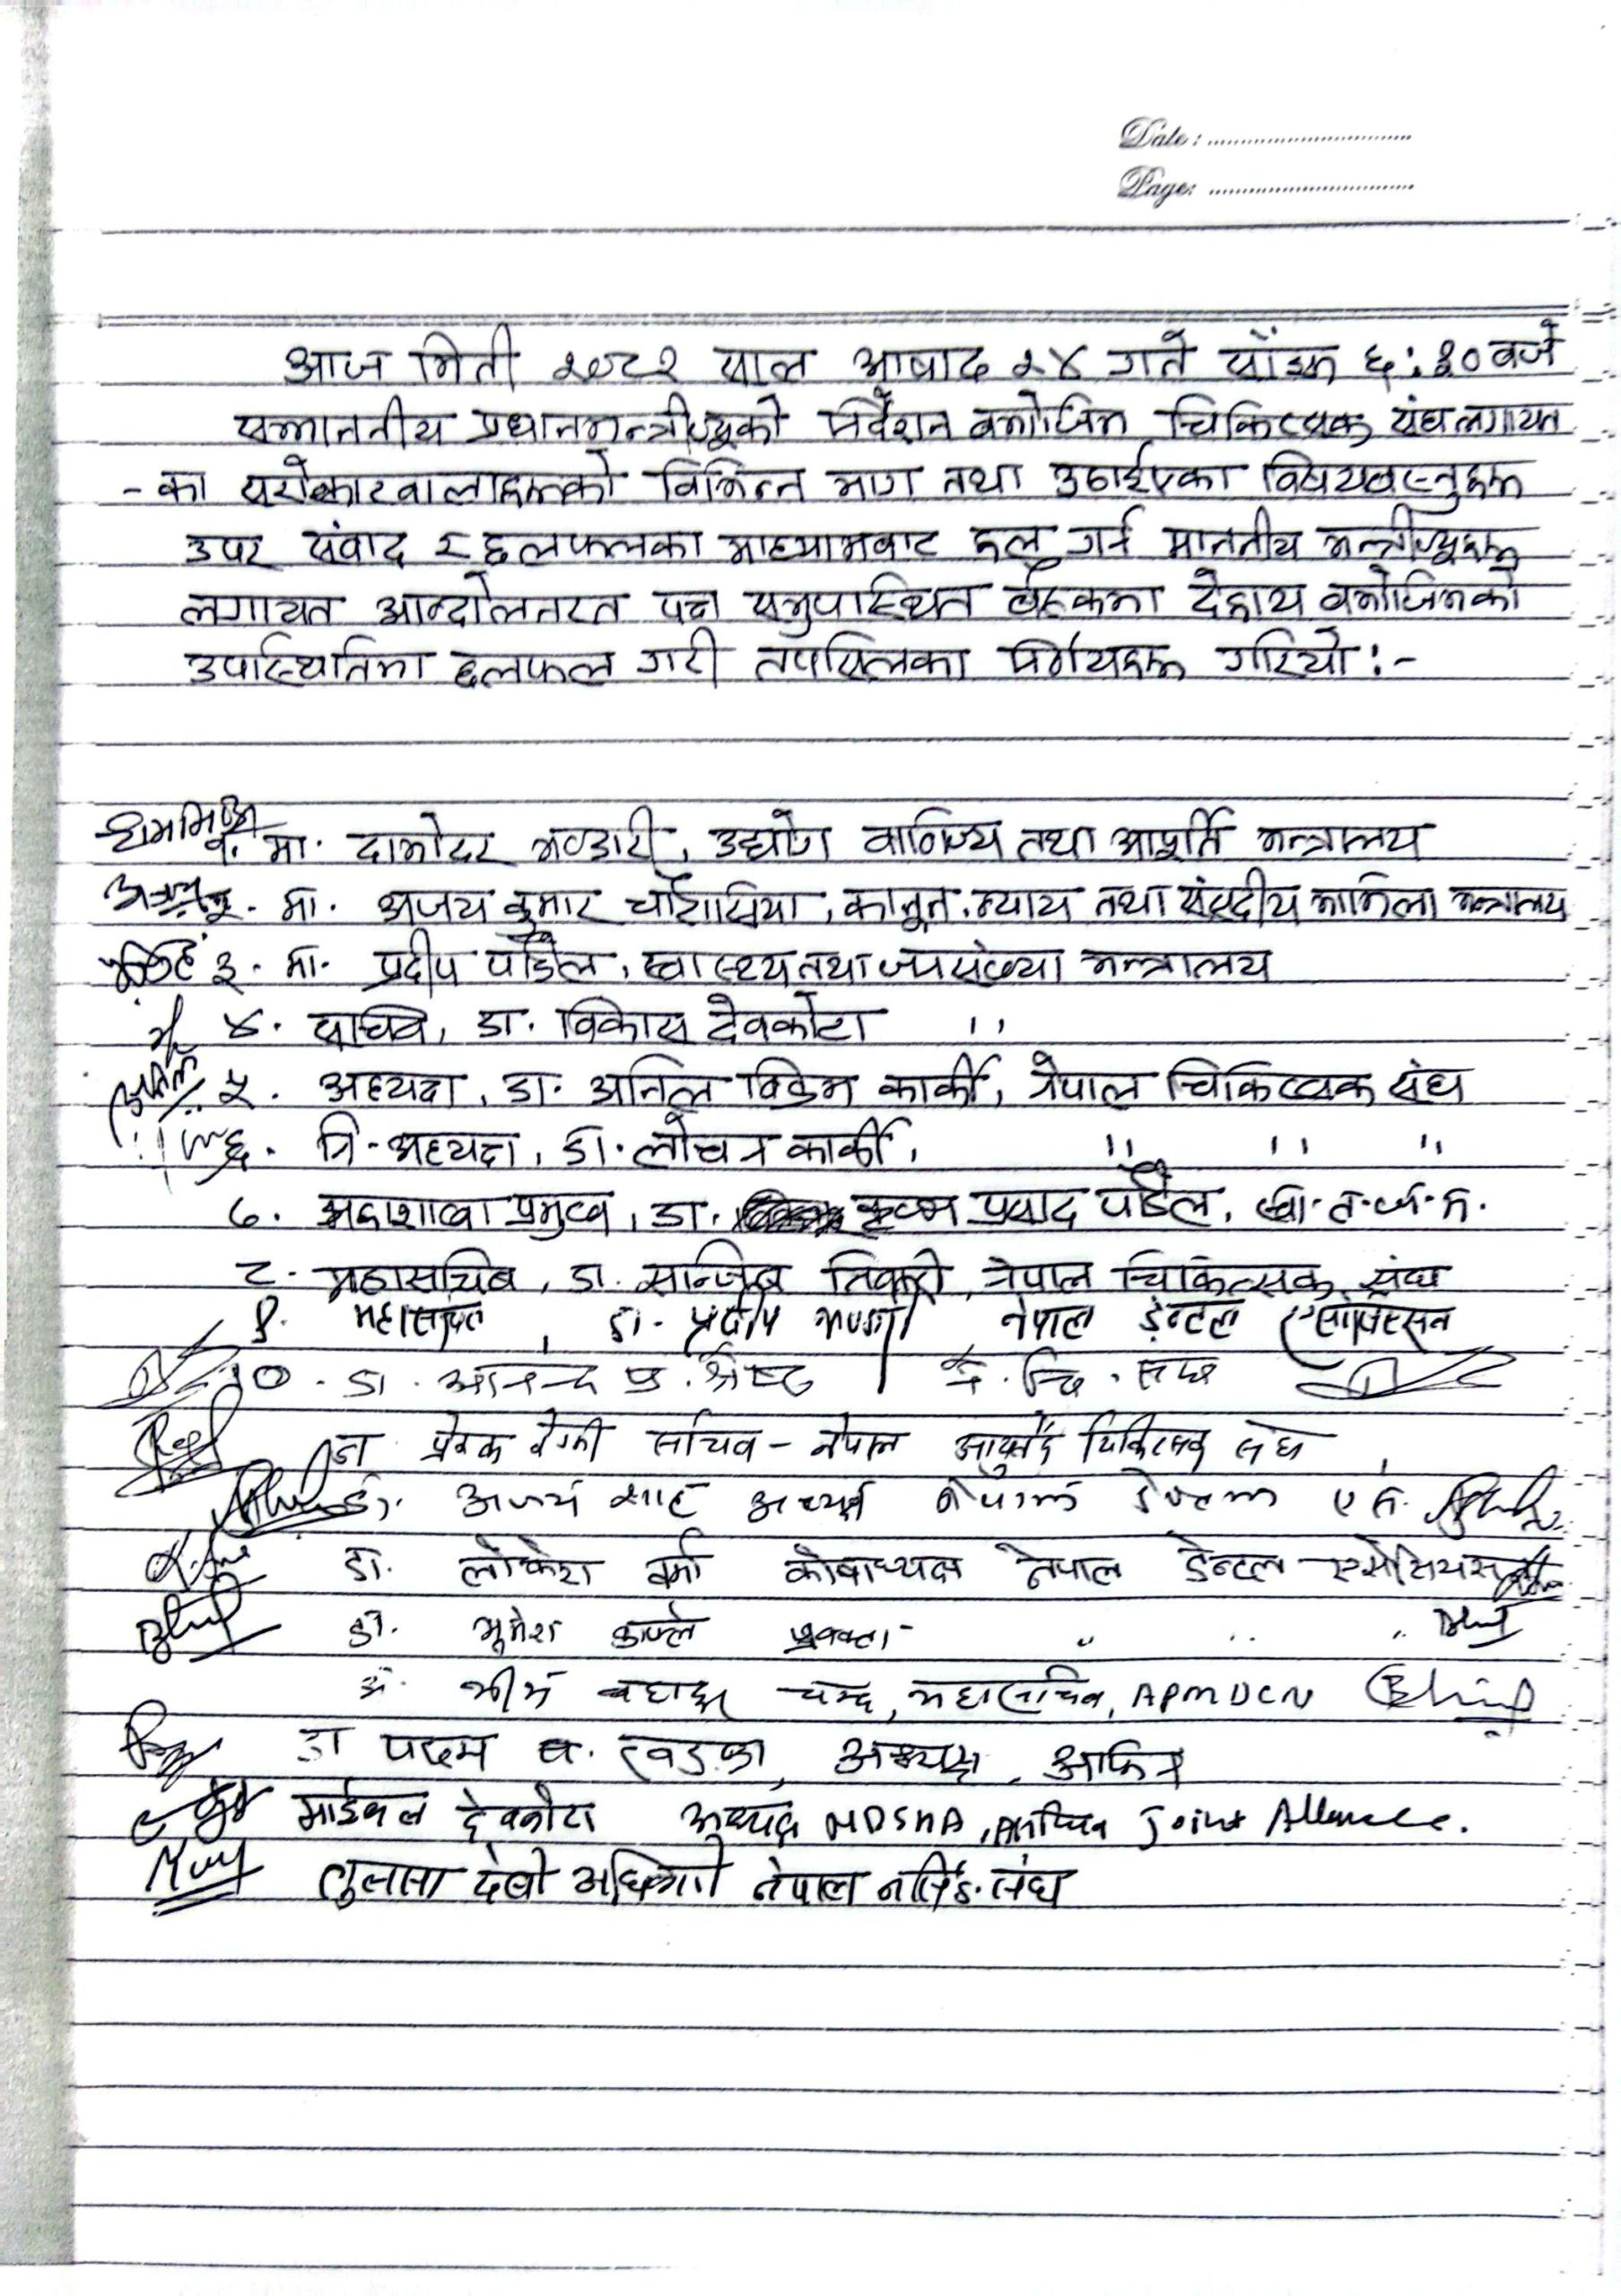 Date : ..............................
Page: ..............................
आज मिती २०८२ साल आषाढ २४ गते साँझ ६:३० बजे
सम्माननीय प्रधानमन्त्रीज्यूको निर्देशन बमोजिम चिकित्सक संघ लगायत
- का सरोकारवालाहरूको विभिन्न माग तथा उठाईएका विषयवस्तुहरू
उपर संवाद र छलफलका माध्यामबाट हल गर्न माननीय मन्त्रीज्यूहरू
लगायत आन्दोलनरत पक्ष समुपास्थित बैठकमा देहाय बमोजिमको
उपास्थितिमा छलफल गरी तपसिलका निर्णयहरू गरियो :-
१. मा. दामोदर भण्डारी, उद्योग वाणिज्य तथा आपूर्ति मन्त्रालय
२. मा. अजय कुमार चौरासिया, कानून, न्याय तथा संसदीय मामिला मन्त्रालय
३. मा. प्रदीप पौडेल, स्वास्थ्य तथा जनसंख्या मन्त्रालय
४. सचिव, डा. विकास देवकोटा ,,
५. अध्यक्ष, डा. अनिल बिक्रम कार्की, नेपाल चिकित्सक संघ
६. नि-अध्यक्ष, डा. लोचन कार्की, " " "
७. महाशाखा प्रमुख, डा. कृष्ण प्रसाद पौडेल, स्वा. त. ज. म.
८. महासचिव, डा. सन्जिब तिवारी, नेपाल चिकित्सक संघ
९. महासचिव, डा. प्रदीप भण्डारी नेपाल डेन्टल एसोसिएसन
१०. डा. आनन्द प्र. श्रेष्ठ ने. चि. संघ
डा. सचिव - नेपाल आयुर्वेद चिकित्सक संघ
डा. अजय शाह अध्यक्ष नेपाल डेन्टल ए सं.
डा. लोकेश वर्मा कोषाध्यक्ष नेपाल डेन्टल एसोसियसन
डा. भुमेश काफ्ले प्रवक्ता- " " "
भीम बहादुर चन्द, महासचिव, APMDCN
डा पदम ब. खड्का, अध्यक्ष,
माईकल देवकोटा अध्यक्ष NDSHA, Joint Alliance.
तुलसा देवी अधिकारी नेपाल नर्सिङ संघ